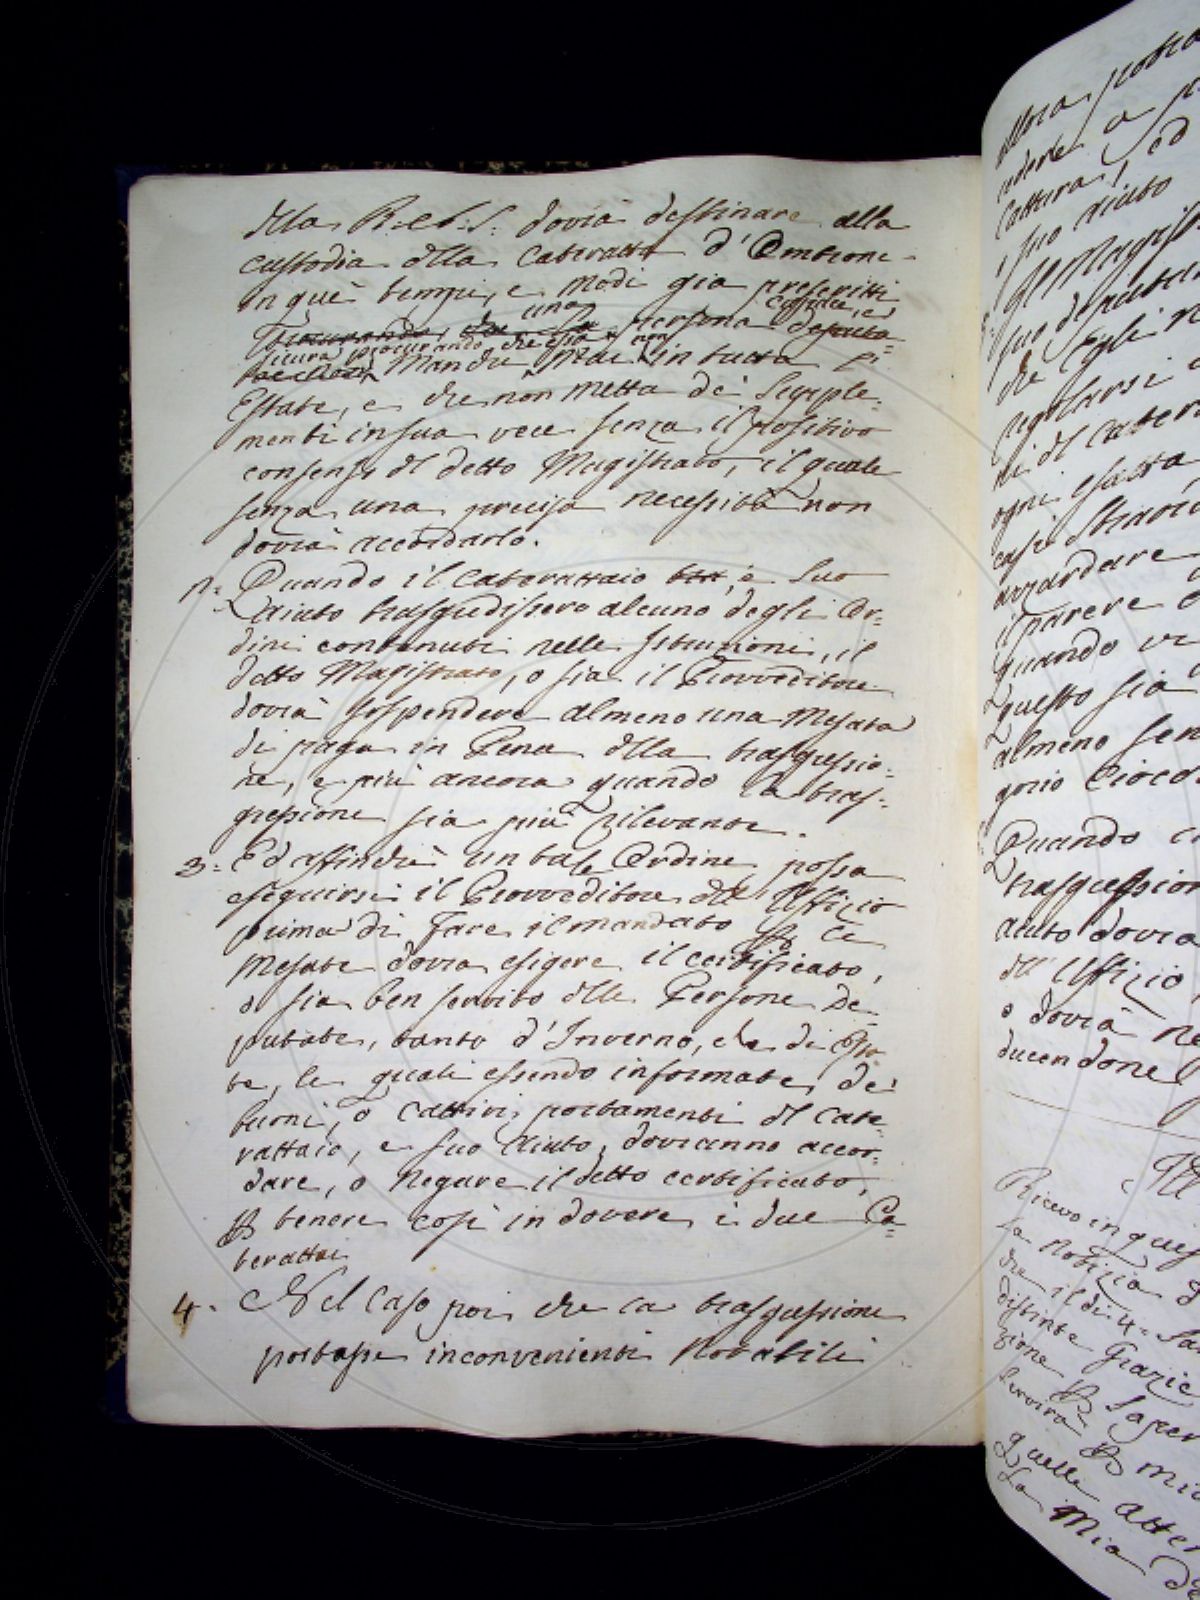 dlla R. Al: S: dovrà destinare alla
custodia dlla Cateratta d'Ombrone
in quei tempi, e modi già prescritti
una capace, e
Procurando, che persona deputa=
sicura procurando che essa non
Mandi Mai in tutta
Estate, e che non metta de' Supple=
menti in sua vece senza il positivo
consenso dl detto Magistrato, il quale
senza una precisa necessità non
dovrà accordarlo.
2: Quando il Caterattaio, e Suo
Aiuto trasgredissero alcuno degli Or=
dini contenuti nelle Istruzioni, il
detto Magistrato, o sia il Provveditore
dovrà sospendere almeno una Mesata
di paga in Pena dlla trasgressio=
ne, e più ancora quando la tras=
gressione sia più rilevante.
3: Ed affinchè un tale Ordine possa
eseguirsi il Provveditore dll' Uffizio
prima di Fare il mandato P le
Mesate dovrà esigere il certificato,
o sia ben servito dlle Persone De=
putate, tanto d'Inverno, che di Esta=
te, le quali essendo informate de'
buoni, o cattivi portamenti dl Cate=
rattaio, e suo Aiuto, dovranno accor=
dare, o Negare il detto certificato,
P tenere così in dovere i due Ca=
terattai
4. Nel Caso poi che la trasgressione
portasse inconvenienti Notabili
allora potrà
cedere a
Cattura, ed
suo aiuto
gl Magist
suo deputat
che Egli
regolarsi
ni dl Cater
ogni esatta
casi straor
azzardare
il parere
quando vi
questo sia
almeno sen
gorio Ciocc
Quando
trasgression
aiuto dovrà
dll' Uffizio,
o dovrà
ducendone
Ricevo in ques
la Notizia
che il dì: 4
distinte Grazie
zione P Saper
Servirà P mio
quelle atten
La Mia